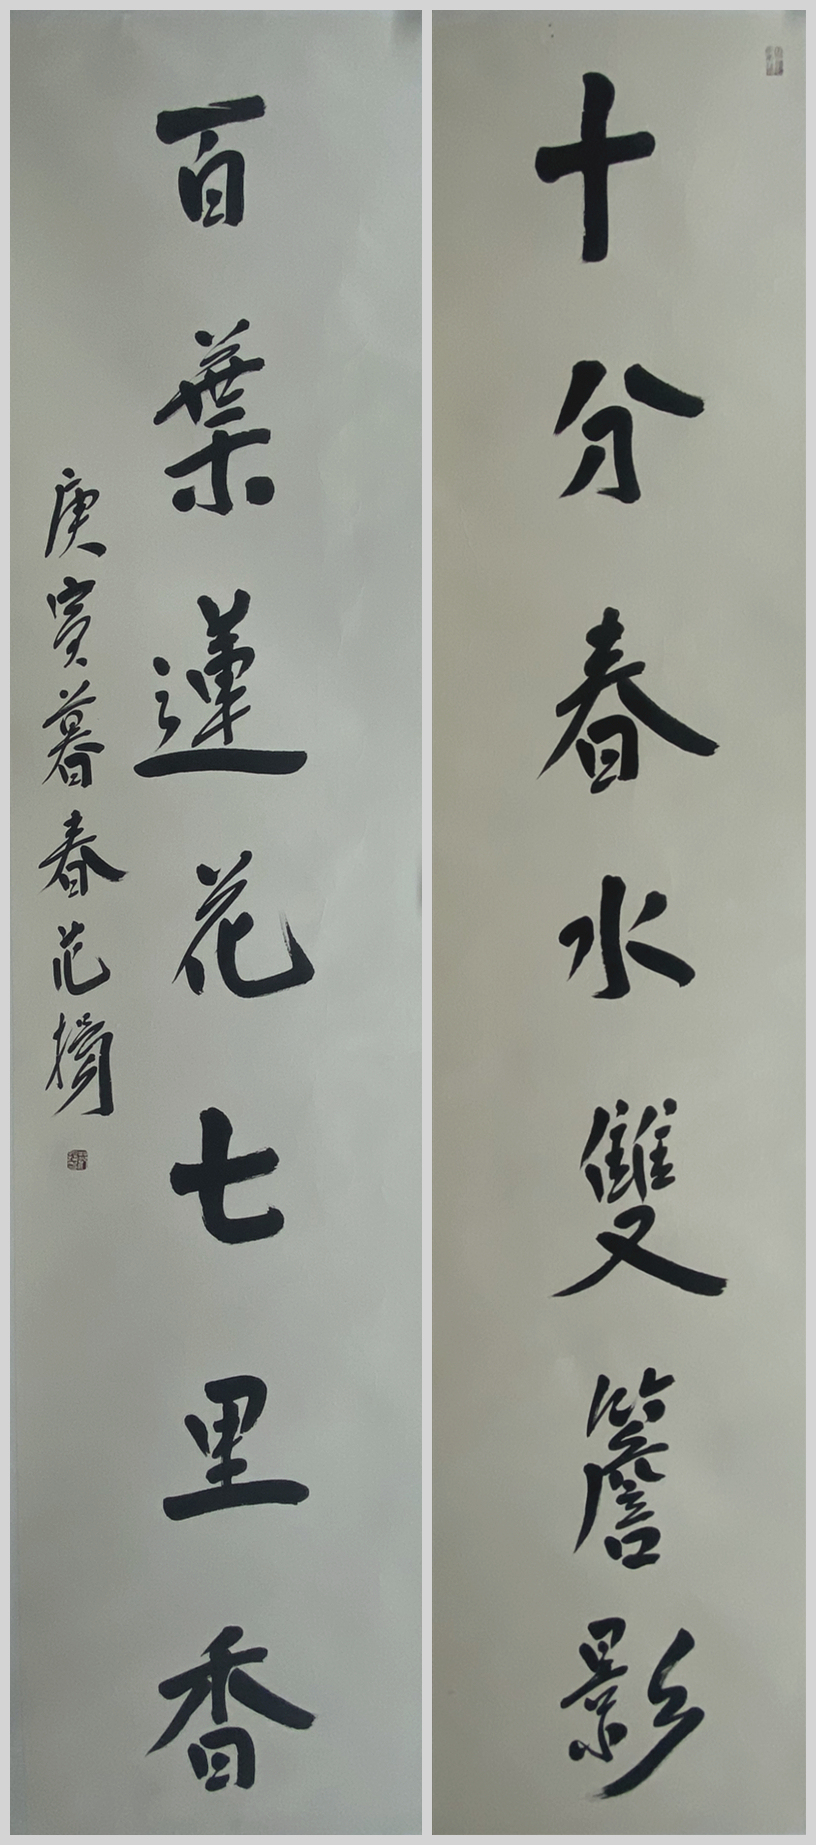 十分春水雙簷影
百葉蓮花七里香
庚寅暮春范撝